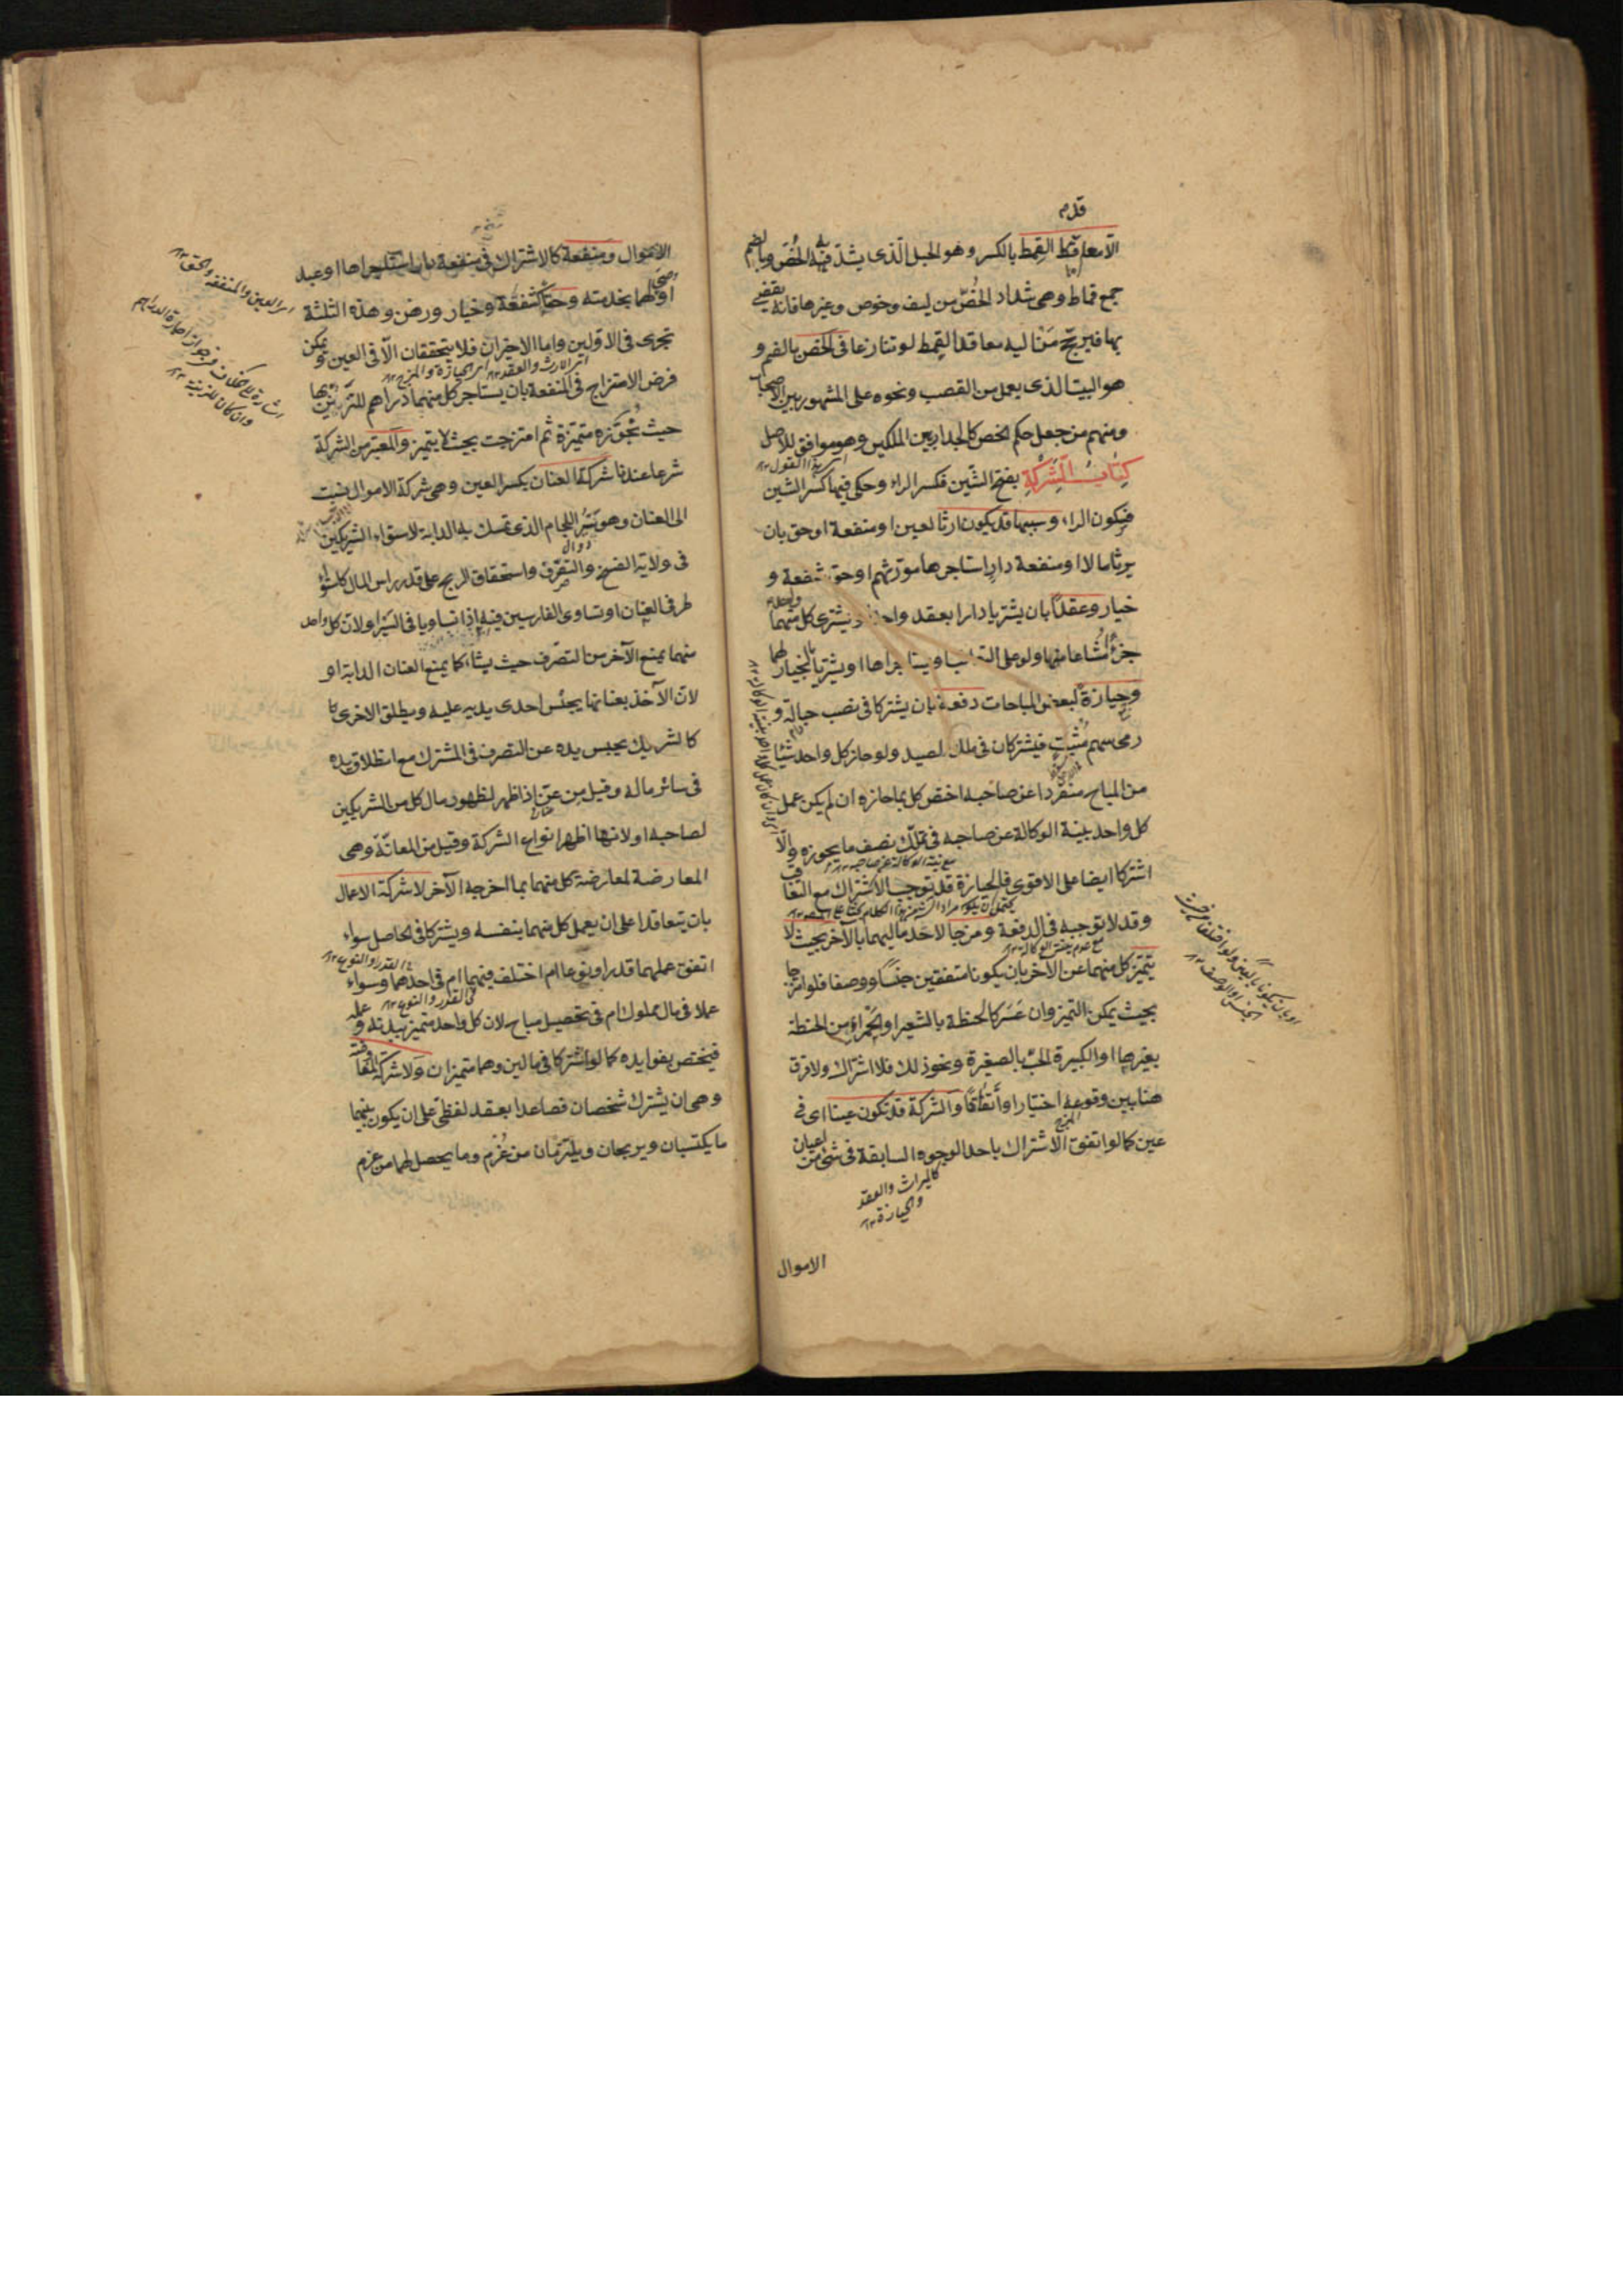 الا معاقد القمط بالكسر وهو الحبل الذى يشد به الخص وبالضم
جمع قماط وهى شداد الخص من ليف وخوص وغيرها فانه يقضى
بها فيرجح من اليه معاقد القمط لو تنازعا فى الخص بالضم و
هو البيت الذى يعمل من القصب ونحوه على المشهور بين الاصحاب
ومنهم من جعل حكم الخص كالجدار بين الملكين وهو موافق للاصل
كتاب الشركة بفتح الشين فكسر الراء وحكى فيها كسر الشين
فسكون الراء وسببها قد يكون ارثا لعين او منفعة او حق بان
يرثا مالا او منفعة دار استاجرها مورثهم او حق شفعة و
خيار وعقدا بان يشتريا دارا بعقد واحد او يشترى كل منهما
جزءا مشاعا منها ولو على التعاقب او يستاجراها او يشتريا بالخيار لهما
وحيازة لبعض المباحات دفعة بان يشتركا فى نصب حبالة و
رمى سهم مثبت فيشتركان فى ملك الصيد ولو حاز كل واحد شيئا
من المباح منفردا عن صاحبه اختص كل بما حازه ان لم يكن عمل
كل واحد بنية الوكالة عن صاحبه فى تملك نصف ما يحوزه والا
اشتركا ايضا على الاقوى فالحيازة قد توجب الاشتراك مع التعاقب
وقد لا توجبه فى الدفعة ومزجا لاحد ماليهما بالآخر بحيث لا
يتميز كل منهما عن الآخر بان يكونا متفقين جنسا ووصفا فلو امتزجا
بحيث يمكن التميز وان عسر كالحنطة بالشعير او الحمراء من الحنطة
بغيرها او الكبيرة الحب بالصغيرة ونحو ذلك فلا اشتراك ولا فرق
هنا بين وقوعه اختيارا واتفاقا والشركة قد تكون عينا اى فى
عين كما لو اتفق الاشتراك باحد الوجوه السابقة فى شئ من اعيان
كالميراث والعقد
والحيازة ١٢
الاموال
الاموال ومنفعة كالاشتراك فى منفعة دار استاجراها او عبد
اوصى لهما بخدمته وحقا كشفعة وخيار ورهن وهذه الثلثة
تجرى فى الاولين واما الاخيران فلا يتحققان الا فى العين ويمكن
فرض الامتزاج فى المنفعة بان يستاجر كل منهما دراهم للتزين بها
حيث نجوزه متميزة ثم امتزجت بحيث لا يتميز والمعتبر من الشركة
شرعا عندنا شركة العنان بكسر العين وهى شركة الاموال نسبت
الى العنان وهو سير اللجام الذى تمسك به الدابة لاستواء الشريكين
فى ولاية الفسخ والتصرف واستحقاق الربح على قدر راس المال كاستواء
طرفى العنان او تساوى الفارسين فيه اذا تساويا فى السير او لان كل واحد
منهما يمنع الآخر من التصرف حيث يشاء كما يمنع العنان الدابة او
لان الآخذ بعنانها يحبس احدى يديه عليه ويطلق الاخرى
كالشريك يحبس يده عن التصرف فى المشترك مع انطلاق يده
فى سائر ماله وقيل من عن اذا ظهر لظهور مال كل من الشريكين
لصاحبه او لانها اظهر انواع الشركة وقيل من المعانة وهى
المعارضة لمعارضة كل منهما بما اخرجه الآخر لا شركة الاعمال
بان يتعاقدا على ان يعمل كل منهما بنفسه ويشتركا فى الحاصل سواء
اتفق عملهما قدرا ونوعا ام اختلف فيهما ام فى احدهما وسواء
عملا فى مال مملوك ام فى تحصيل مباح لان كل واحد متميز ببدنه وعمله
فيختص بفوايده كما لو اشتركا فى مالين وهما متميزان ولا شركة المفاوضة
وهى ان يشترك شخصان فصاعدا بعقد لفظى على ان يكون بينهما
ما يكتسبان ويربحان ويلتزمان من غرم وما يحصل لهما من غرم
اى العين والمنفعة والحق ١٢